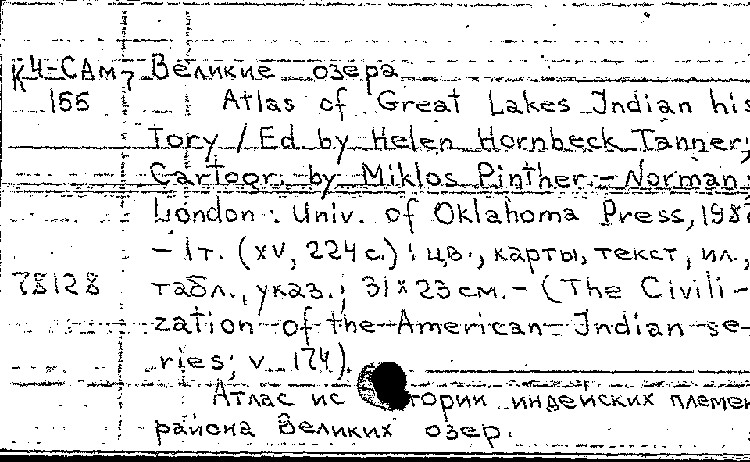 К4-САм7 Великие озера
155 Atlas of Great Lakes Indian his
tory / Ed. by Helen Hornbeck Tanner;
Cartogr. by Miklos Pinther. - Norman;
London: Univ. of Oklahoma Press, 198
- 1т. (XV, 224 с.) : цв., карты, текст, ил.,
78128 табл., указ.; 31×23 см. - (The Civili-
zation of the American Indian se-
ries; v. 174).
Атлас ис тории индейских племен
района Великих озер.